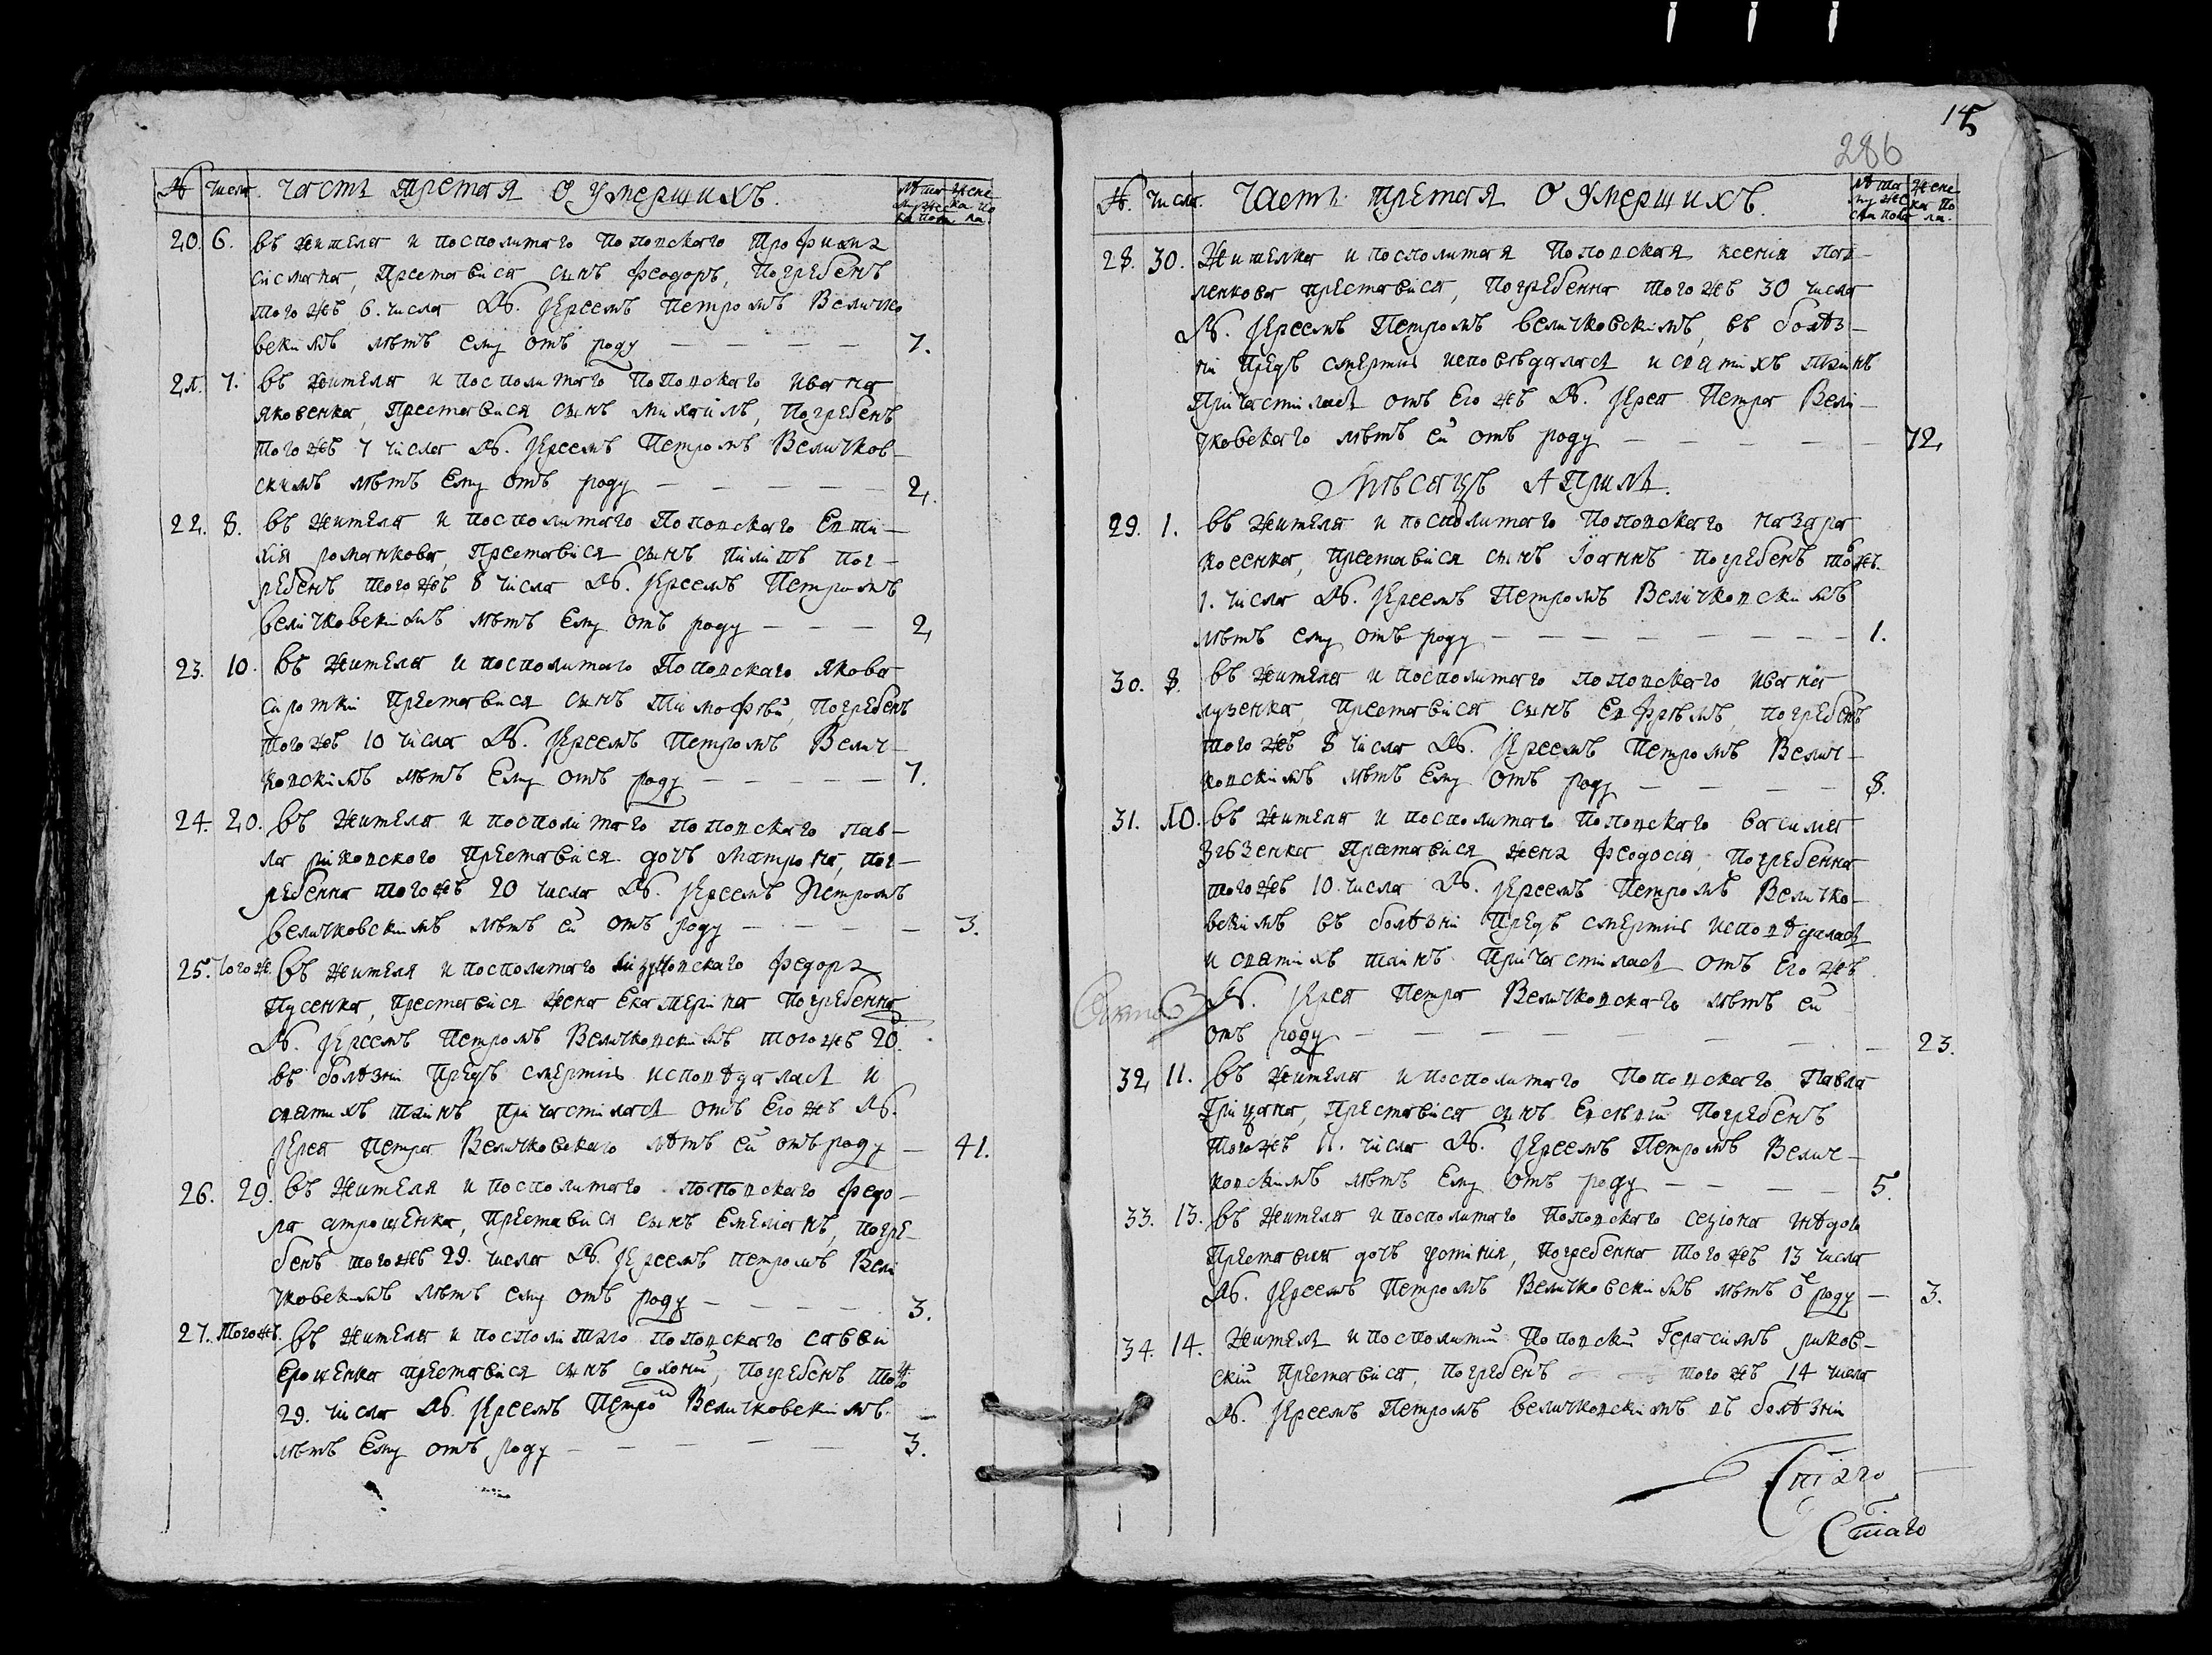 № Числа. Часть третая О Умершихъ. Лѣта мужеска пола Женска пола.
20. 6. въ жителя и посполитаго Поповского Трофима
сисмана, Преставися сынъ Феодоръ, Погребенъ
того жъ 6. числа Іереемъ Петромъ Величко
вскимъ лѣтъ ему отъ роду — — — — 7.
21. 7. въ жителя и посполитаго Поповского Ивана
яковенка, Преставися сынъ Михаилъ, Погребенъ
того жъ 7 числа Іереемъ Петромъ Величков-
скимъ лѣтъ Ему отъ роду — — — — — 2.
22. 8. въ жителя и посполитаго Поповского Евти-
хія романкова, Преставися сынъ Пилипъ Пог-
ребенъ того жъ 8 числа Іереемъ Петромъ
величковскимъ лѣтъ Ему отъ роду — — — 2.
23. 10. въ жителя и посполитаго Поповского якова
сиротки Преставися сынъ Тимофѣй, Погребенъ
того жъ 10 числа Іереемъ Петромъ Велич-
ковскимъ лѣтъ Ему отъ роду — — — — — 7.
24. 20. въ жителя и посполитаго поповского пав-
ла риковского Преставися дочъ Матрона, пог-
ребенна того жъ 20 числа Іереемъ Петромъ
величковскимъ лѣтъ ей отъ роду — — — — 3.
25. Того ж. въ жителя и посполитаго Федора
Пусенка, Преставися жена Екатерина Погребенна
Іереемъ Петромъ Величковскимъ того жъ 20.
въ болѣзни Предъ смертию исповѣдалася и
святихъ таинъ причастилася отъ Его жъ
Іерея Петра Величковскаго лѣтъ ей отъ роду — 41.
26. 29. въ жителя и посполитаго поповского Федо-
ра атрощенка, Преставися сынъ Емелианъ, погре-
бенъ того жъ 29. числа Іереемъ Петромъ Вели
чковскимъ лѣтъ ему отъ роду — — — — 3.
27. Того жъ. въ жителя и посполитаго поповского саввы
Ерощенка преставися сынъ Погребенъ того ж
29. числа Іереемъ Петромъ Величковскимъ.
лѣтъ Ему отъ роду — — — — — 3.
15
286
№. Числа. Часть третая О Умершихъ. Лѣта мужеска пола Женска пола.
28. 30. Жителка и посполитая Поповская ксения
ленкова преставися, Погребенна того жъ 30 числа
Іереемъ Петромъ величковскимъ, въ болѣз-
ни Предъ смертию исповѣдалася и святихъ таинъ
Причастилася отъ Его жъ Іерея Петра Вели-
чковскаго лѣтъ ей отъ роду — — — — — 72.
Мѣсяцъ Априль.
29. 1. въ жителя и посполитаго Поповского назара
косенка, преставися сынъ Іоаннъ погребенъ того жъ.
1. числа Іереемъ Петромъ Величковскимъ
лѣтъ ему отъ роду — — — — — — — — 1.
30. 8. въ жителя и посполитаго поповского Ивана
лузенка, Преставися сынъ Ефрѣмъ, погребенъ
того жъ 8 числа Іереемъ Петромъ Велич-
ковскимъ лѣтъ Ему отъ роду — — — — 8.
31. 10. въ жителя и посполитаго Поповского василия
Преставися жена Феодосія, Погребенна
того жъ 10. числа Іереемъ Петромъ Величко-
вскимъ въ болѣзни Предъ смертию исповѣдалася
и святихъ таинъ Причастилася отъ Его жъ
Іерея Петра Величковского лѣтъ ей
отъ роду — — — — — — — — 23.
32. 11. въ жителя и посполитаго Поповского Павла
Грицана, Преставися сынъ Евсѣвий Погребенъ
того жъ 11. числа Іереемъ Петромъ Велич-
ковскимъ лѣтъ Ему отъ роду — — — — 5.
33. 13. въ жителя и посполитаго Поповского
Преставися дочъ устиния, Погребенна того жъ 13 числа
Іереемъ Петромъ Величковскимъ лѣтъ роду — 3.
34. 14. Житель и посполитий Поповский Герасимъ риков-
ский Преставися, погребенъ того жъ 14 числа
Іереемъ Петромъ величковскимъ въ болѣзни